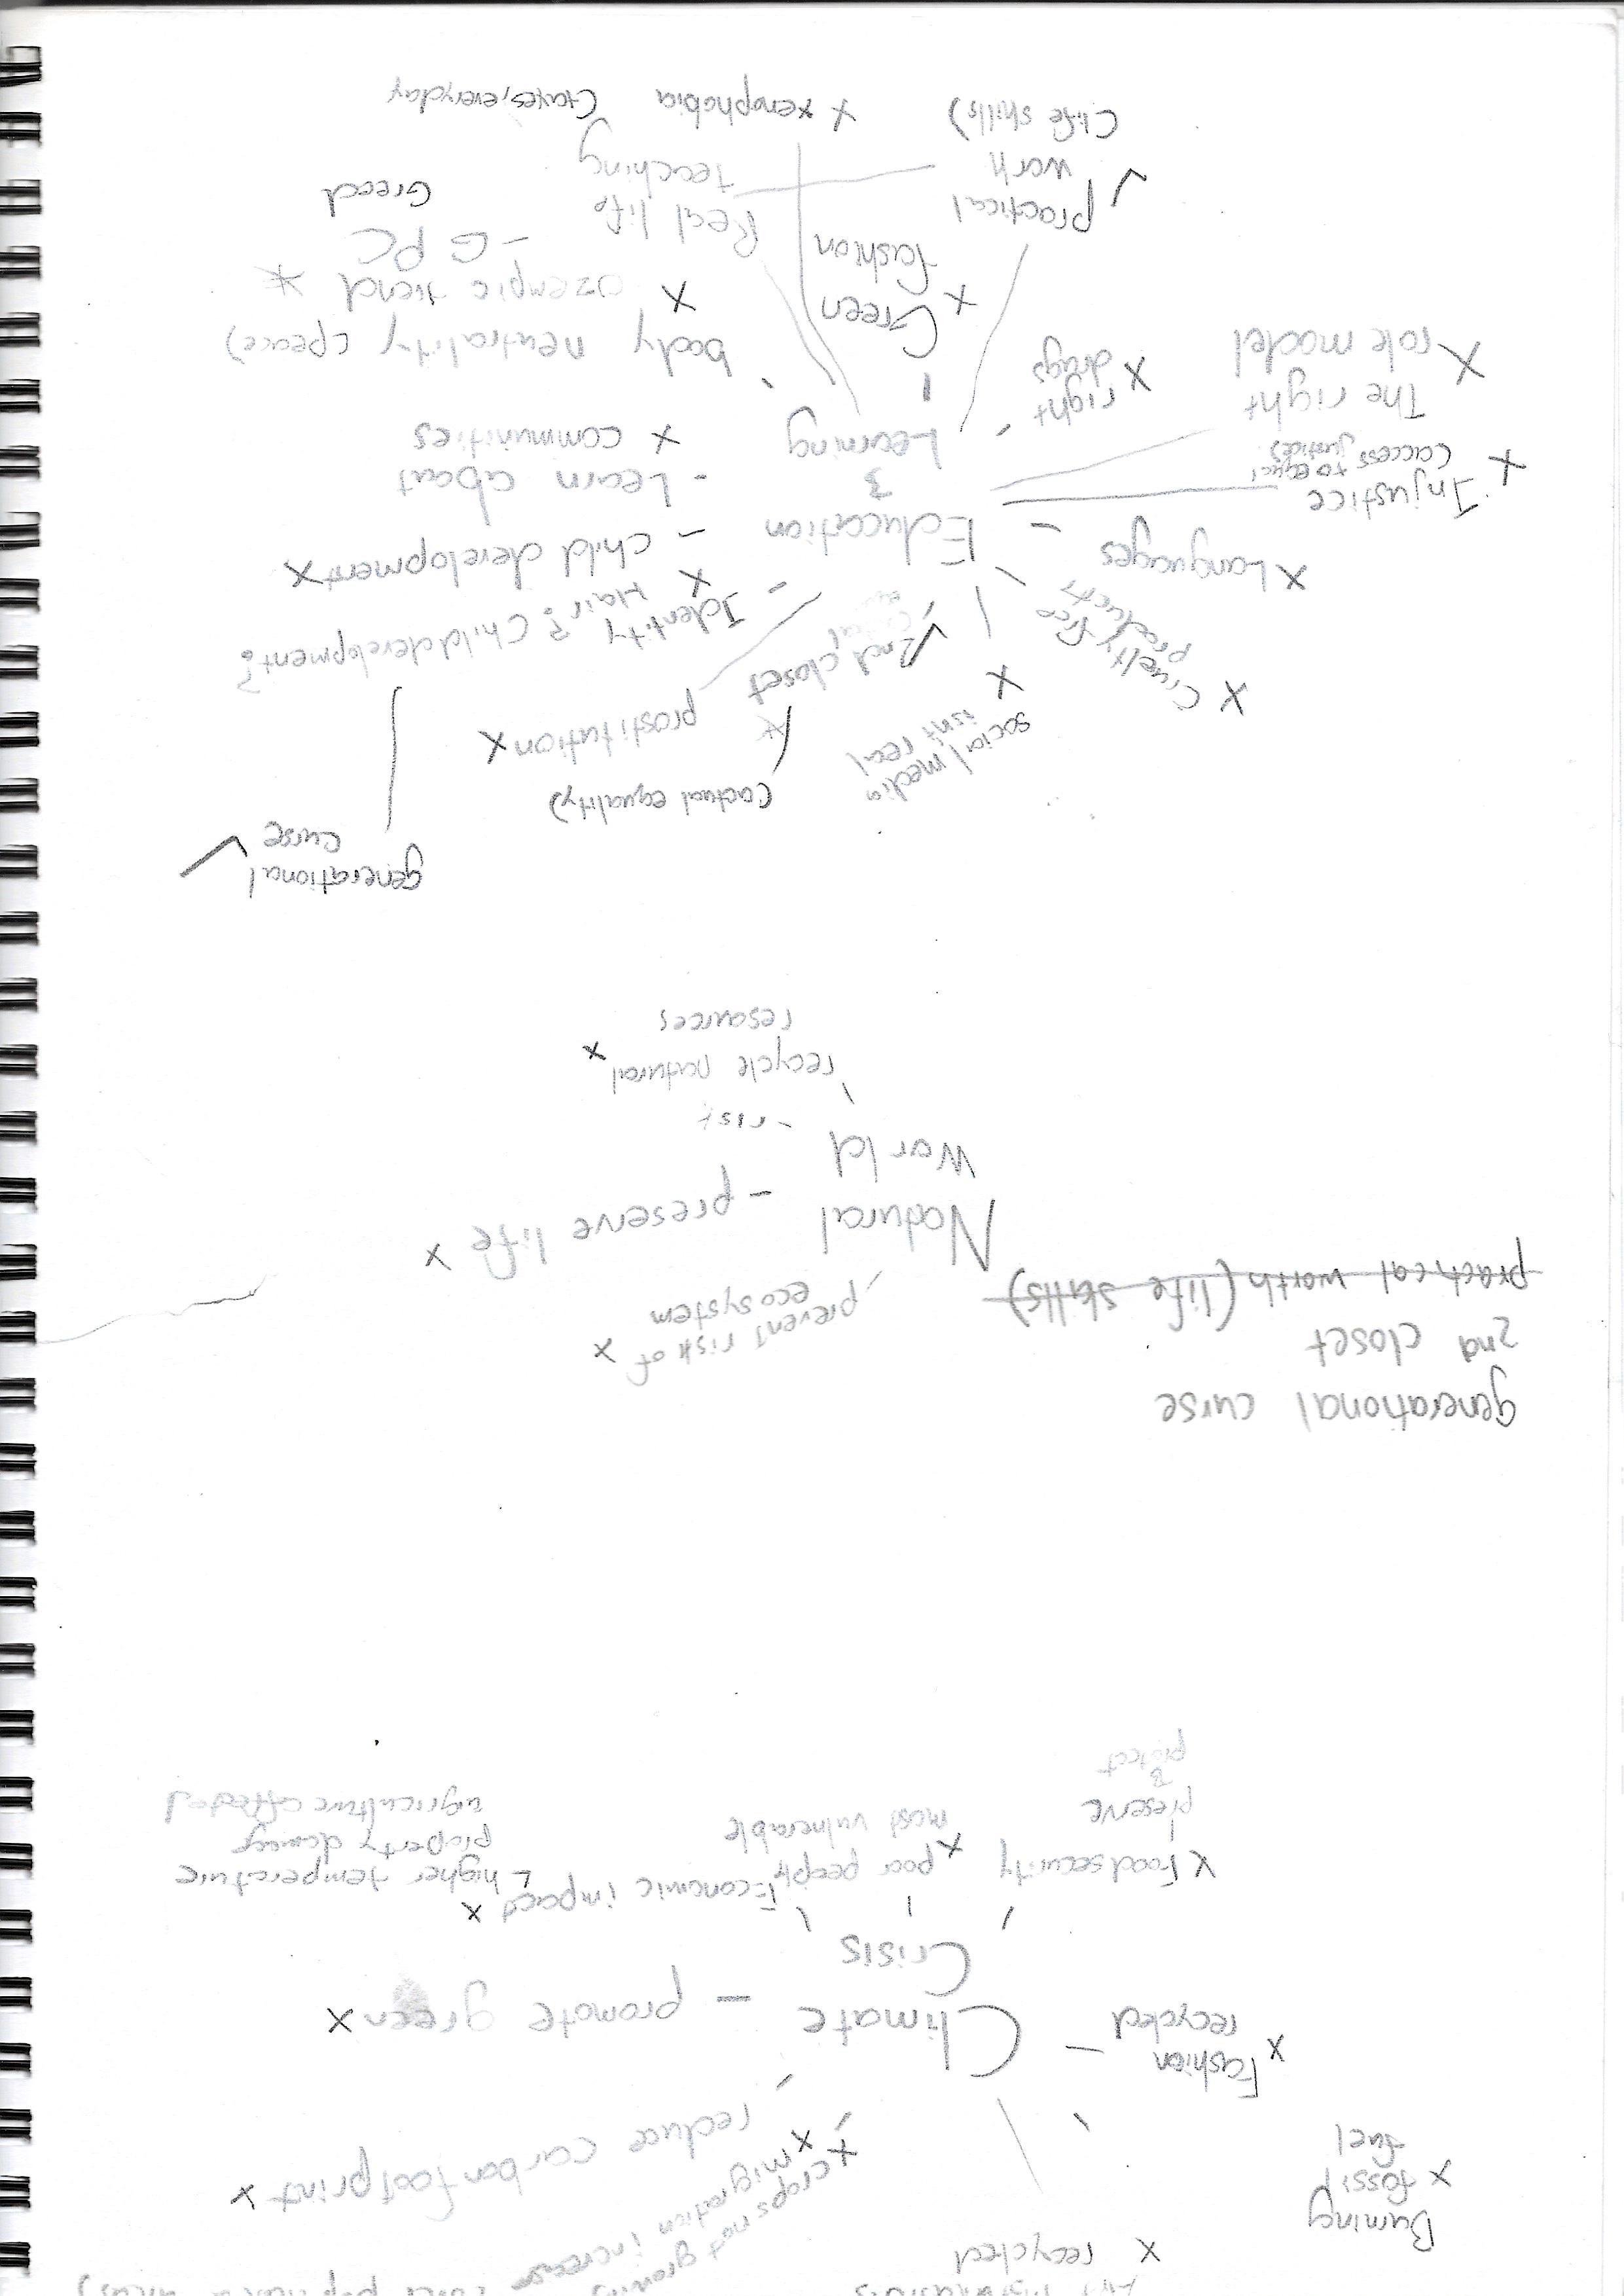 recycled
crops not growing
migration increase
reduce carbon footprint
Burning
fossil
fuel
Fashion
recycled
Climate
Crisis
- promote green
Food security
preserve
&
protect
poor people
most vulnerable
Economic impact
higher temperature
property damage
agriculture affected
generational curse
2nd closet
practical worth (life skills)
prevent risk of
ecosystem
Natural
World
- preserve life
recycle natural
resources
generational
curse
(actual equality)
social media
isn't real
prostitution
2nd closet
Cruelty free
products
Identity
Hair? Child development?
Languages
Education
&
Learning
- child development
- Learn about
communities
Injustice
(access to equal
justice)
The right
role model
right
drugs
body neutrality (peace)
ozempic trend
Green
fashion
- GPC
Greed
Real life
teaching
practical
work
(life skills)
xenophobia